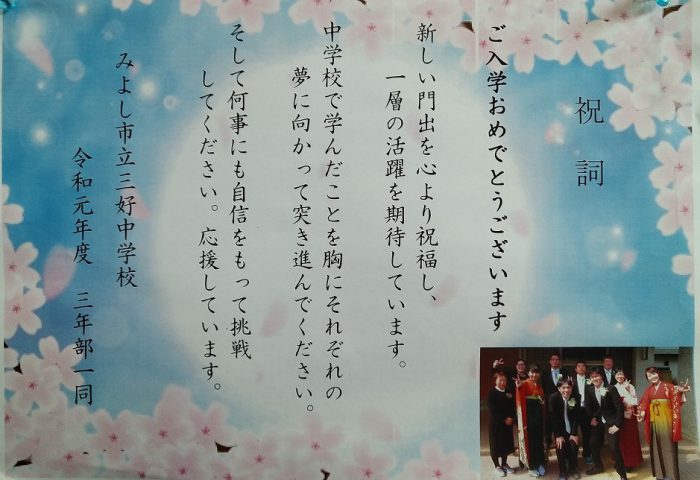 祝詞
ご入学おめでとうございます
新しい門出を心より祝福し、
一層の活躍を期待しています。
中学校で学んだことを胸にそれぞれの
夢に向かって突き進んでください。
そして何事にも自信をもって挑戦
してください。応援しています。
みよし市立三好中学校
令和元年度 三年部一同